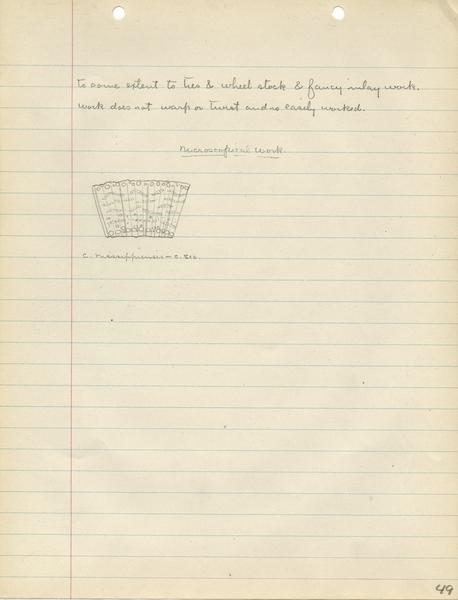 to some extent to ties & wheel stock & fancy inlay work.
Work does not warp or twist and is easily worked.
Microscopical Work.
C. mississippiensis – C. Sec.
49